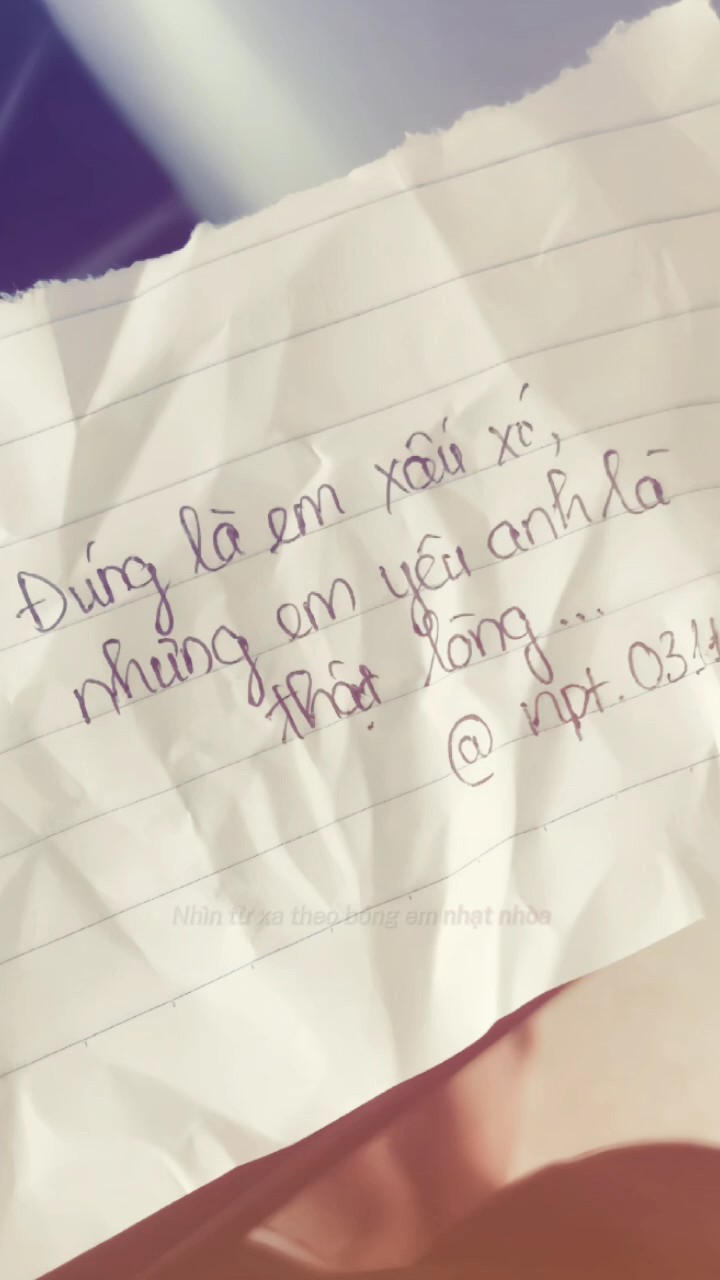 Đúng là em xấu xí,
nhưng em yêu anh là
thật lòng...
@ npt.0311
Nhìn từ xa theo bóng em nhạt nhòa